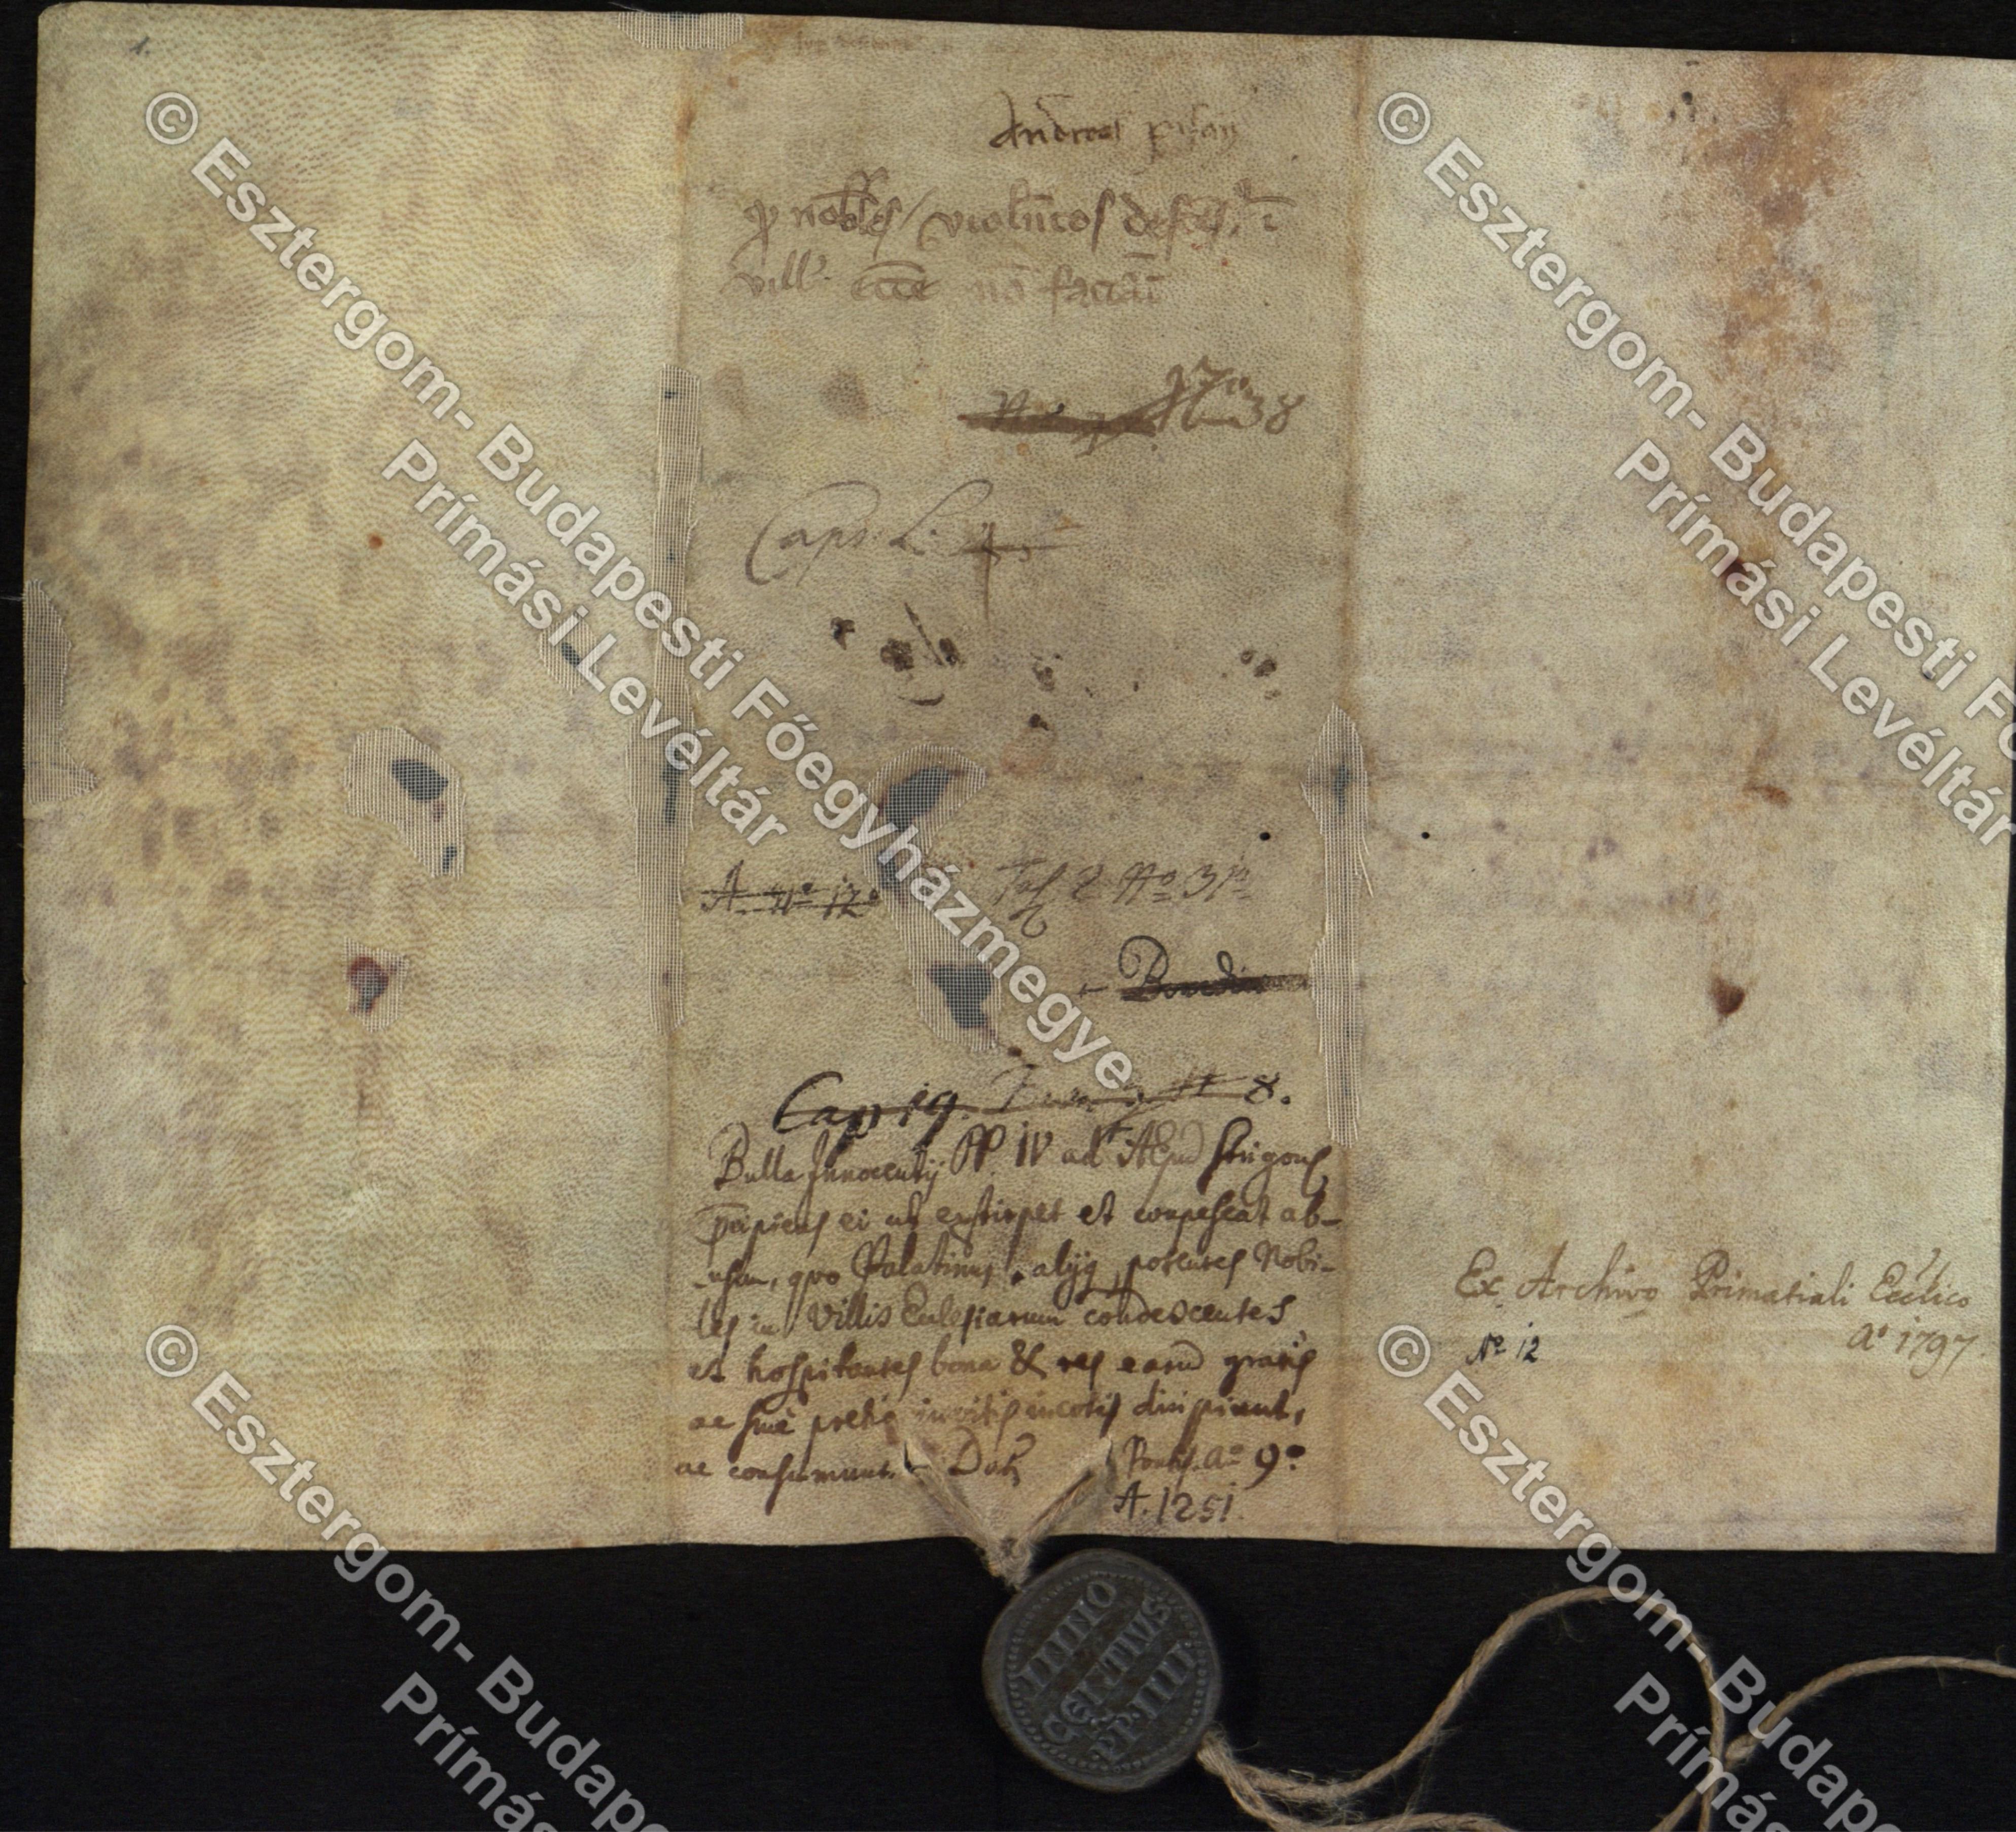 1.
Andreas
ꝓ nob̄les violn̄tos desc̄es. ī
vill. ecc̄e nō faciāt
38
Caps. L.
A. Nº 12º
Fas 2 Nº 31º
Cap 19. 8.
Bulla Innocentij PP. IV ad AEpū Strigonῑ
p̄cipiens ei ut extirpet et compescat ab-
-usum, quo Palatinus, alijq potentes Nobi-
les in Villis Ecclesiarum condescentes
et hospitantes bona & res earū gratis
ac sine pretio invitis incolis diripiunt,
ac consumunt. Dat Pontif. Aº 9º
A. 1251.
Ex Archivo Primatiali Ecc̄lico
Aº 1797.
Nº 12
INNO
CENTIUS
PP·IIII·
© Esztergom- Budapesti Főegyházmegye
Prímási Levéltár
© Esztergom- Budapesti Fő
Prímási Levéltár
© Esztergom- Budape
Prímás
© Esztergom- Budape
Prímás